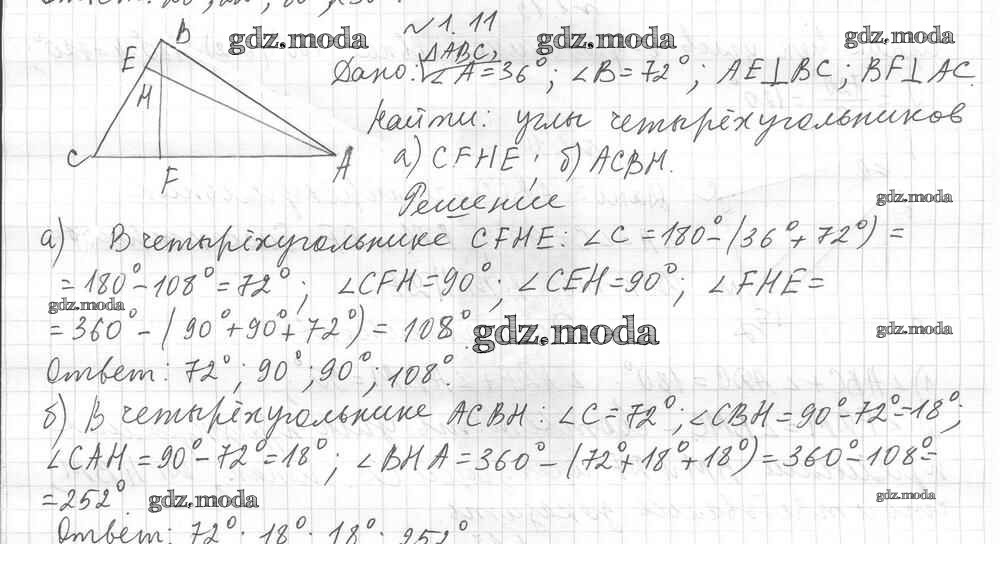 №1.11
B
E
H
C
F
A
ΔABC,
Дано: ∠A=36°; ∠B=72°; AE⊥BC; BF⊥AC.
Найти: углы четырёхугольников
а) CFHE; б) ACBH.
Решение
а) В четырёхугольнике CFHE: ∠C=180°-(36°+72°)=
=180°-108°=72°; ∠CFH=90°; ∠CEH=90°; ∠FHE=
=360°-(90°+90°+72°)=108°.
Ответ: 72°; 90°; 90°; 108°.
б) В четырёхугольнике ACBH: ∠C=72°; ∠CBH=90°-72°=18°;
∠CAH=90°-72°=18°; ∠BHA=360°-(72°+18°+18°)=360°-108°=
=252°.
Ответ: 72°; 18°; 18°; 252°
gdz.moda
gdz.moda
gdz.moda
gdz.moda
gdz.moda
gdz.moda
gdz.moda
gdz.moda
gdz.moda